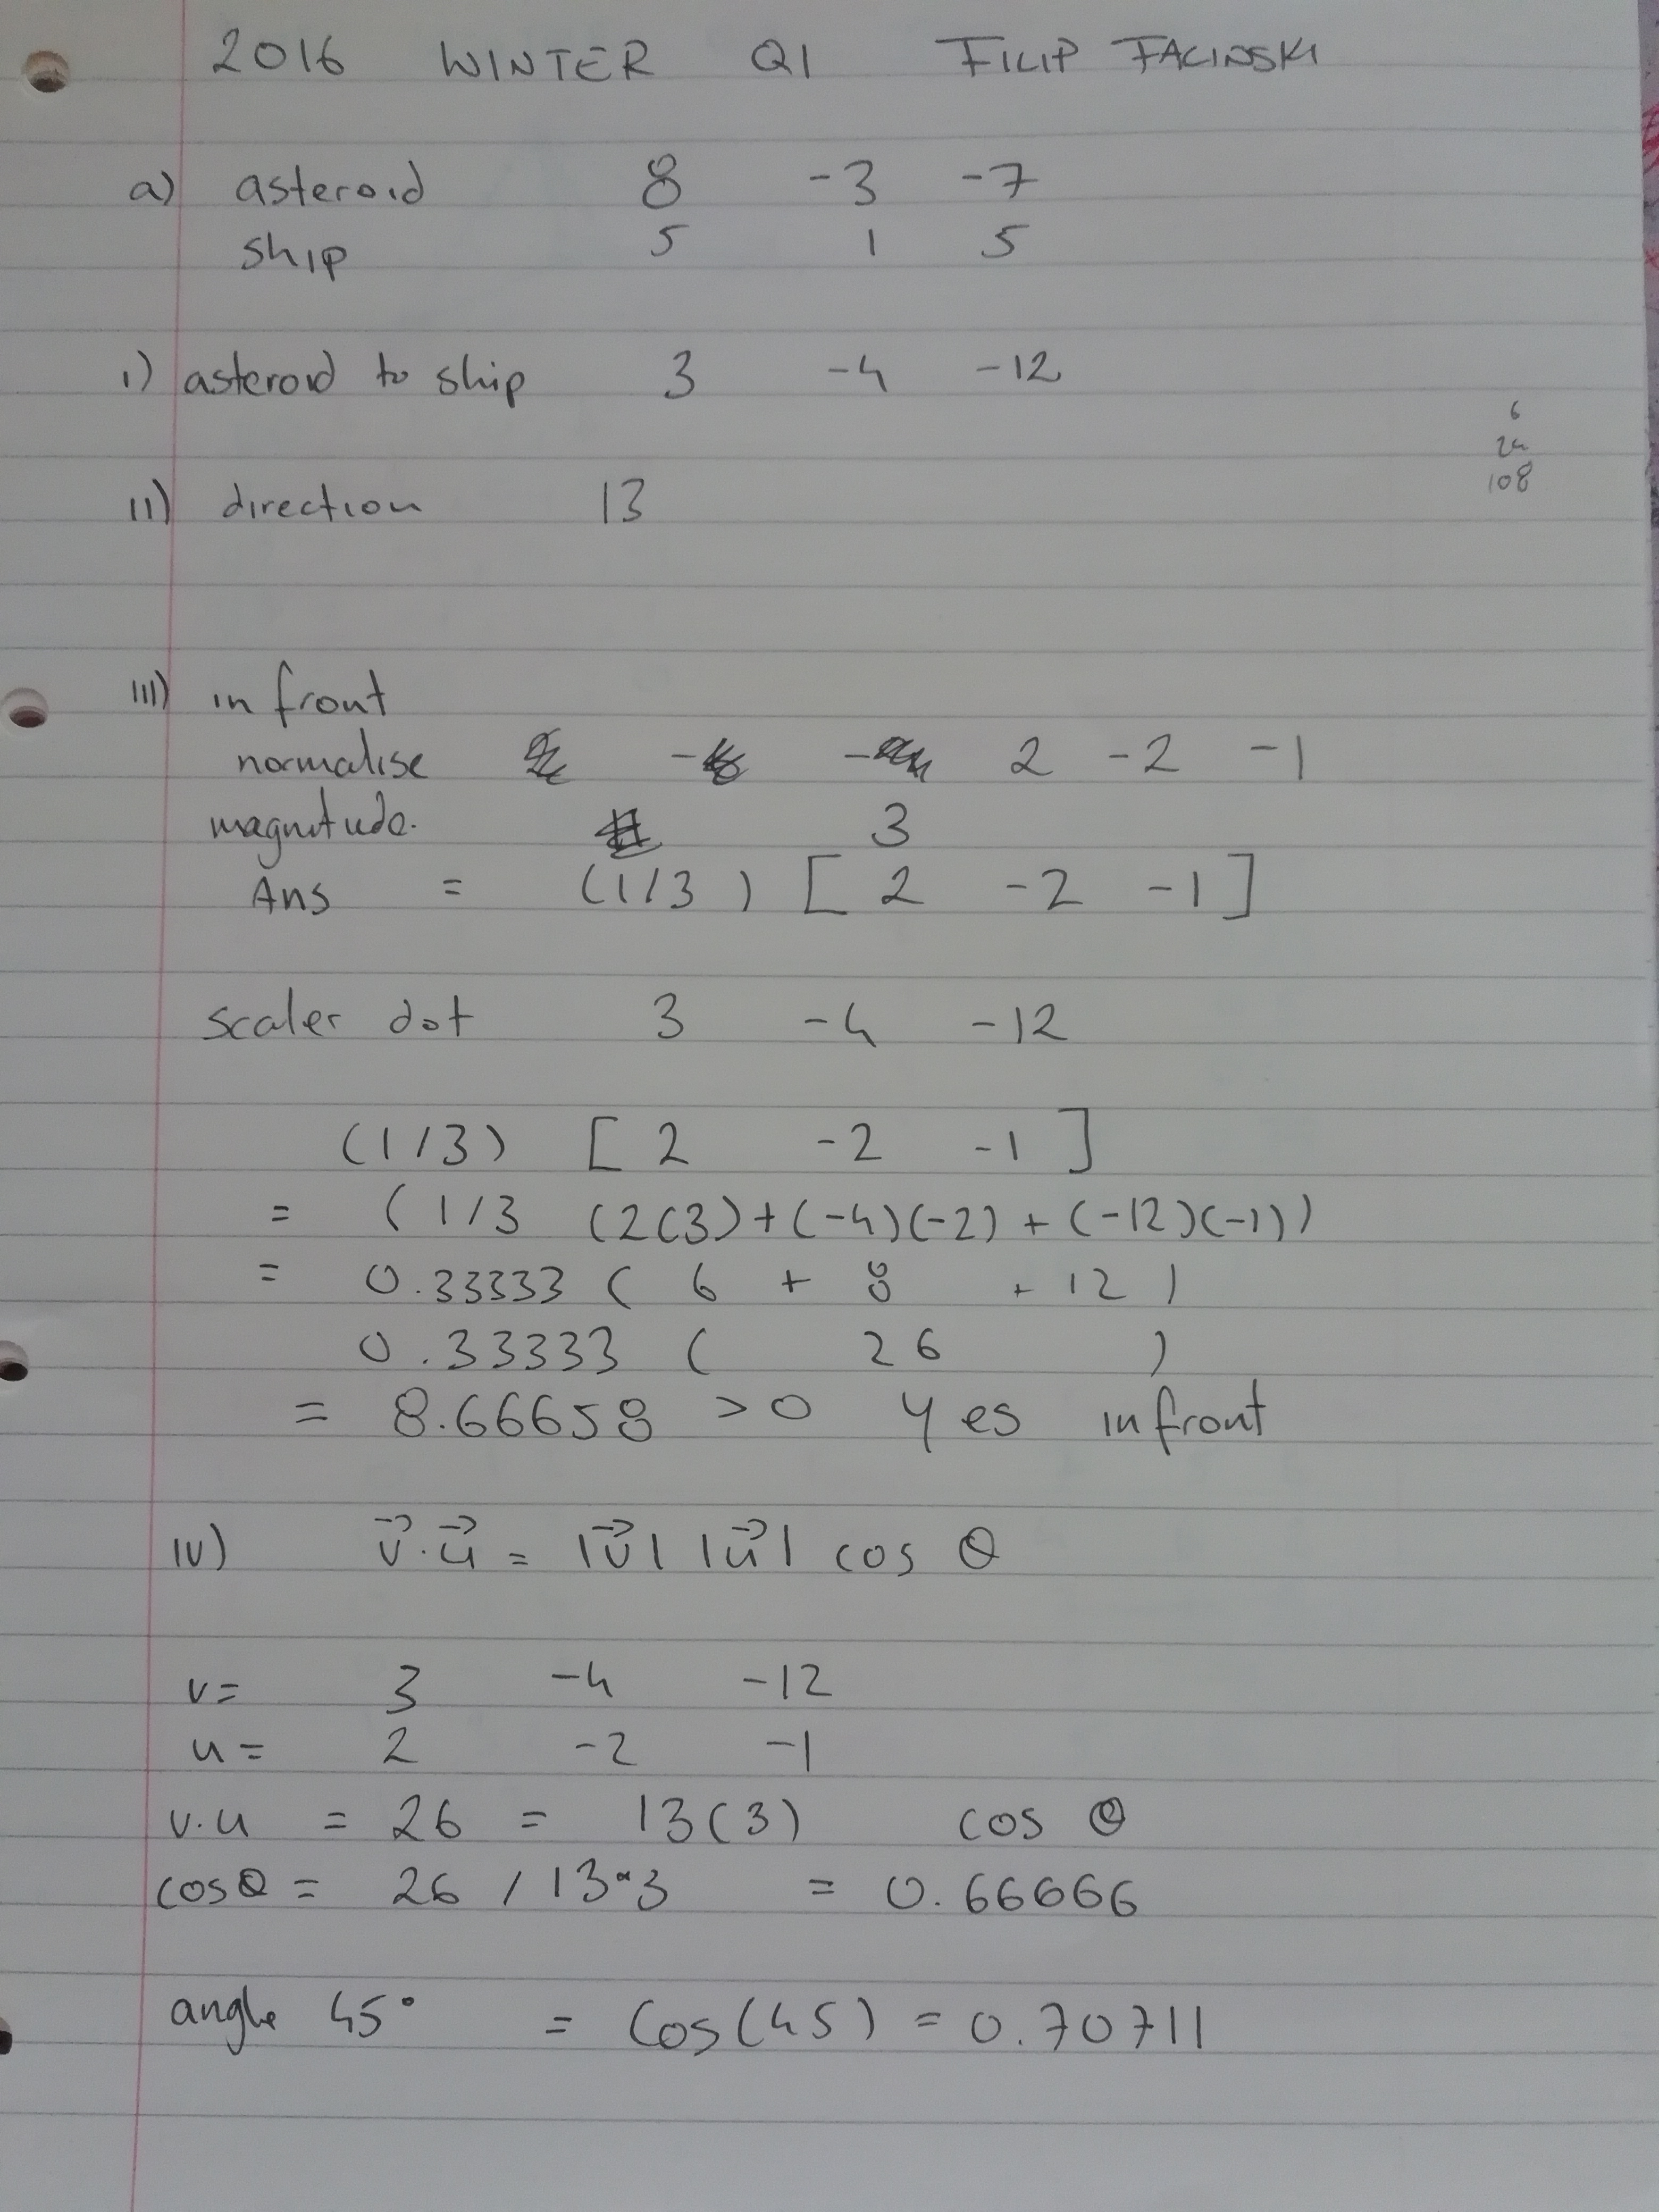 2016 WINTER Q1 FILIP FACINSKI
a) asteroid 8 -3 -7
ship 5 1 5
i) asteroid to ship 3 -4 -12
6
24
108
ii) direction 13
iii) in front
normalise 2 -2 -1
magnitude. 3
Ans = (1/3) [ 2 -2 -1 ]
scaler dot 3 -4 -12
(1/3) [ 2 -2 -1 ]
= (1/3 (2(3)+(-4)(-2) + (-12)(-1))
= 0.33333 ( 6 + 8 + 12 )
0.33333 ( 26 )
= 8.66658 >0 Yes in front
iv) v⃗.u⃗ = |v⃗| |u⃗| cos θ
v= 3 -4 -12
u= 2 -2 -1
v.u = 26 = 13(3) cos θ
cosθ = 26 / 13*3 = 0.66666
angle 45° = Cos(45) = 0.70711